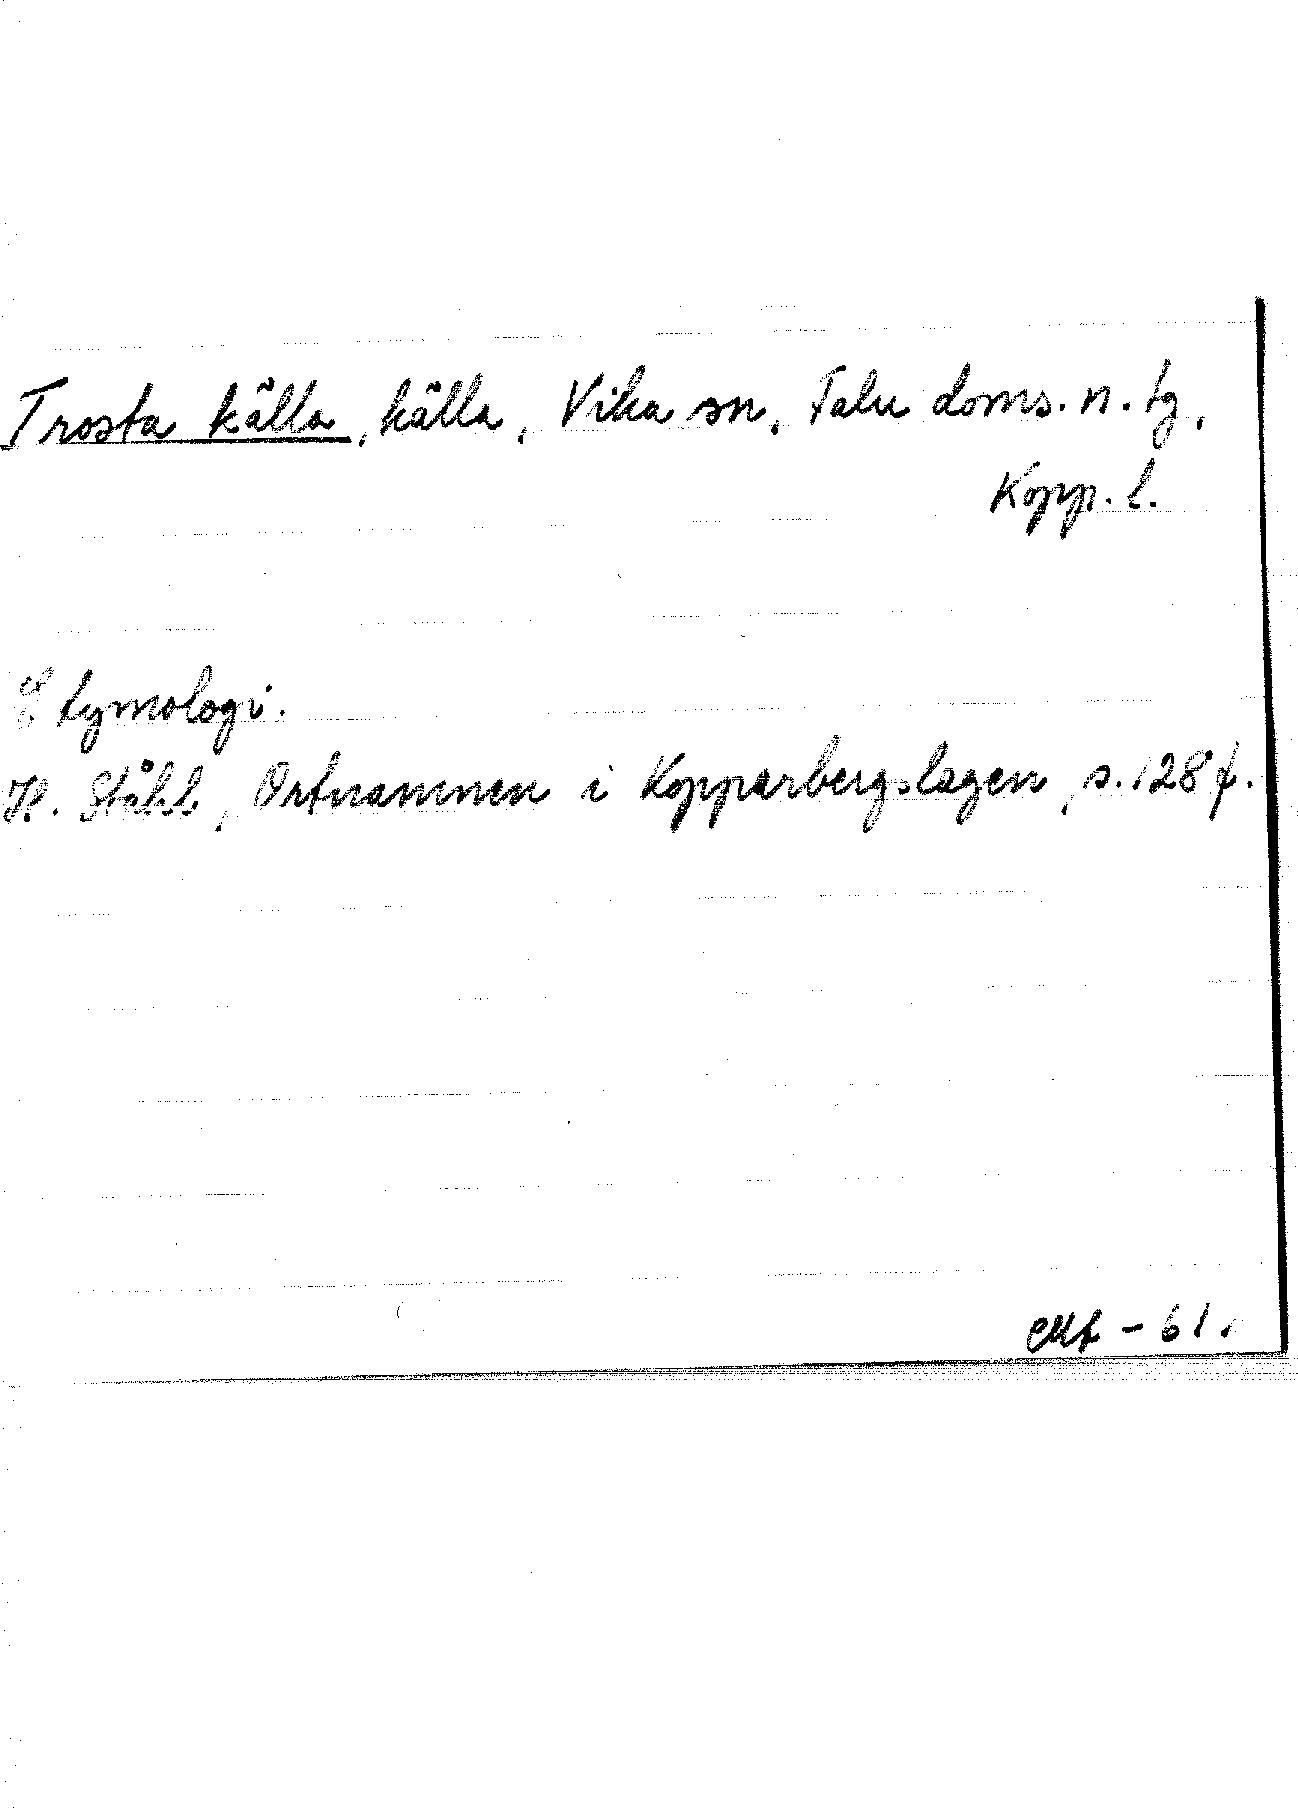 Trosta källa, källa, Vika sn, Falu doms. n. tg,
Kopp. l.
Etymologi.
H. Ståhl, Ortnamnen i Kopparbergslagen, s. 128 f.
- 61.